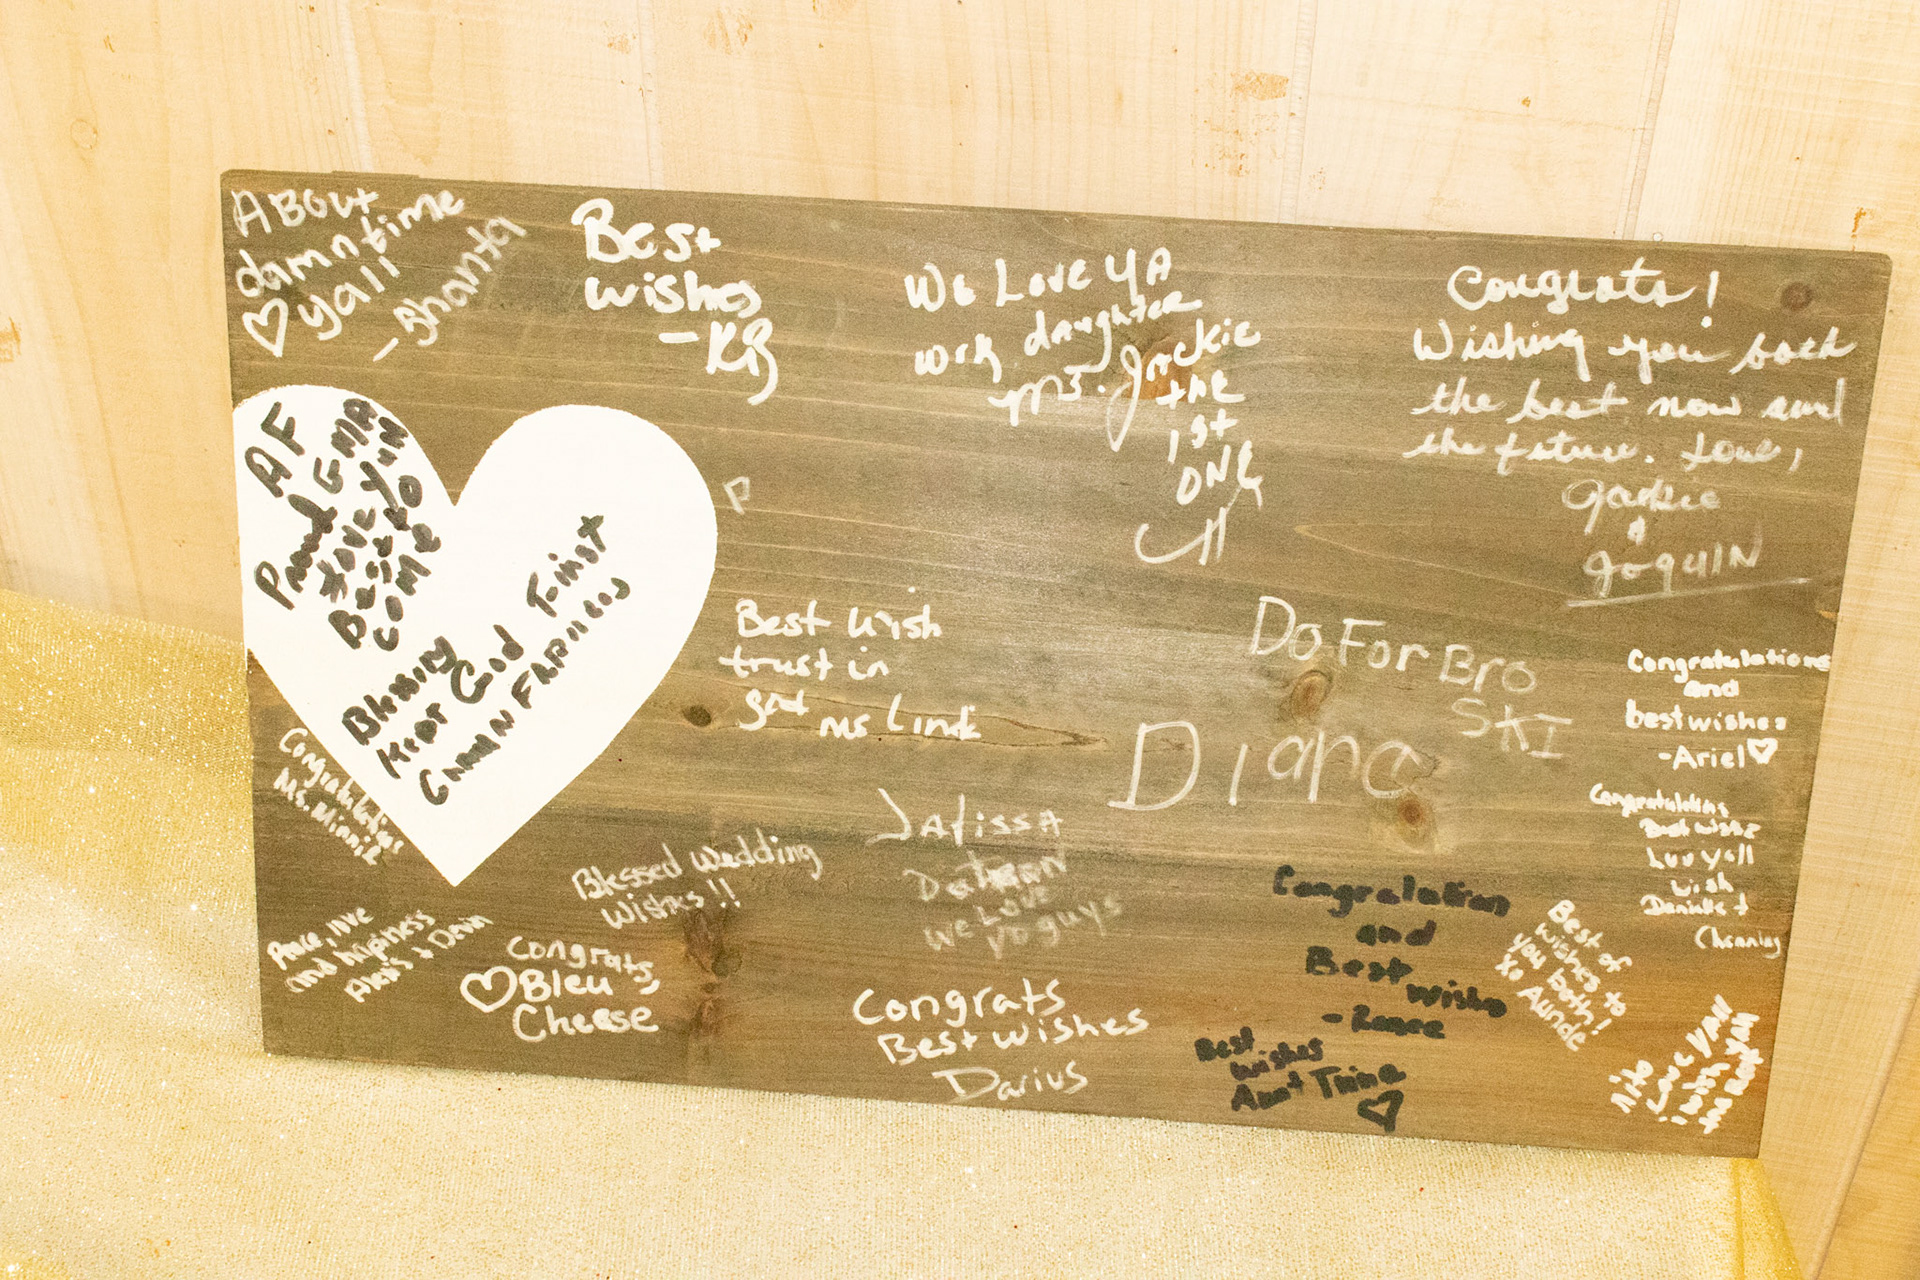 ABOUT
damn time
yall
- Shanta
Best
wishes
- KB
We Love YA
work daughter
Ms. Jackie
the
1st
ONE
Congrats!
Wishing you both
the best now and
the future. Love,
Jackie
&
JoquIN
AF
Proud GMA
Love yuh
Best to
come
Blessing
Keep God First
P
Best Wish
trust in
god ms Linda
Do For Bro
SKI
Diana
Congratulations
and
best wishes
- Ariel
Congratulations
Best wishes
Luv yall
Wish
Danielle &
Channing
Congratulations
Ms. Minnie
Blessed Wedding
Wishes!!
Latissa
We Love
yo guys
Peace, love
and happiness
Alexis & Devin
Congrats,
Bleu
Cheese
Congrats
Best wishes
Darius
Congratulation
and
Best
wishes
- Renee
Best
wishes
Aunt Trina
Best of
wishes to
you both!
Xo Auntie
Love Y'All
i wish you
the Best